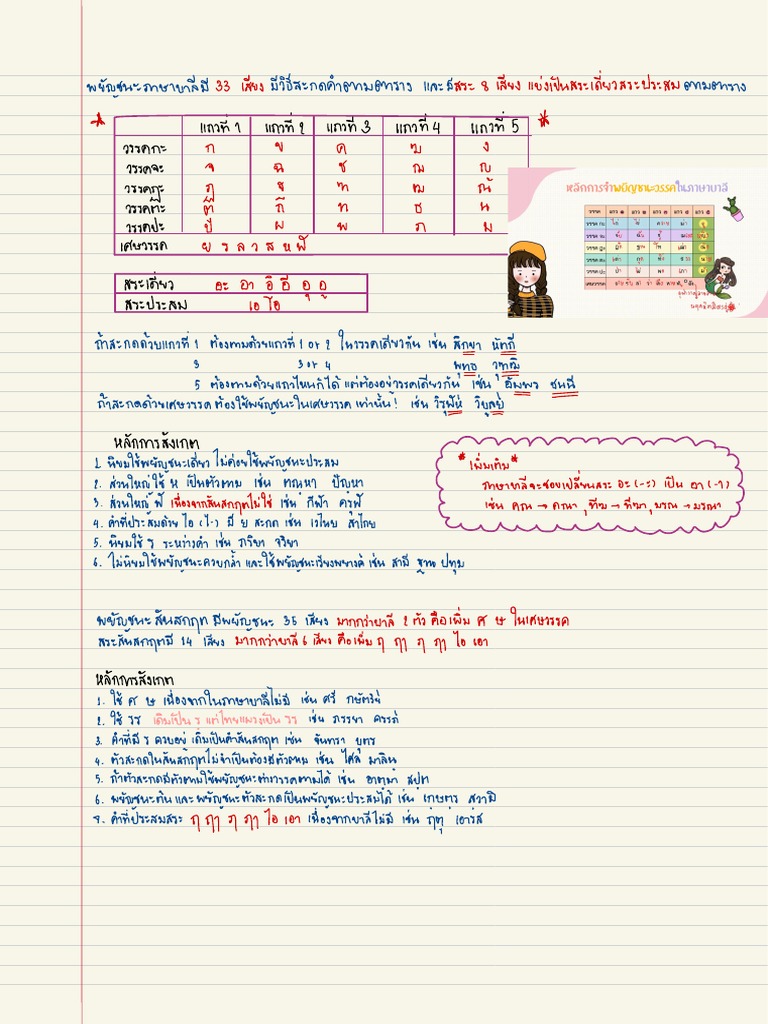 พยัญชนะภาษาบาลีมี 33 เสียง มีวิธีสะกดคำตามตาราง และมีสระ 8 เสียง แบ่งเป็นสระเดี่ยวสระประสม ตามตาราง
* แถวที่ 1 แถวที่ 2 แถวที่ 3 แถวที่ 4 แถวที่ 5 *
วรรคกะ ก ข ค ฆ ง
วรรคจะ จ ฉ ช ฌ ญ
วรรคฏะ ฏ ฐ ฑ ฒ ณ
วรรคตะ ต ถ ท ธ น
วรรคปะ ป ผ พ ภ ม
เศษวรรค ย ร ล ว ส ห ฬ
หลักการจำพยัญชนะวรรคในภาษาบาลี
วรรค แถว ๑ แถว ๒ แถว ๓ แถว ๔ แถว ๕
สระเดี่ยว อะ อา อิ อี อุ อู
สระประสม เอ โอ
ถ้าสะกดด้วยแถวที่ 1 ต้องตามด้วยแถวที่ 1 or 2 ในวรรคเดียวกัน เช่น สิกขา นัตถี
3 3 or 4 พุทธ วุฑฒิ
5 ต้องตามด้วยแถวไหนก็ได้ แต่ต้องอยู่วรรคเดียวกัน เช่น อัมพร ชนนี
ถ้าสะกดด้วยเศษวรรค ต้องใช้พยัญชนะในเศษวรรค เท่านั้น! เช่น วิรุฬห์ วัยุลย์
หลักการสังเกต
1. นิยมใช้พยัญชนะเดี่ยว ไม่ค่อยใช้พยัญชนะประสม
2. ส่วนใหญ่ใช้ ห เป็นตัวตาม เช่น ตัณหา ปัญหา
3. ส่วนใหญ่ ฬ เนื่องจากสันสกฤตไม่ใช้ เช่น กีฬา ครุฬ
4. คำที่ประสมด้วย ไอ (ไ-) มี ย สะกด เช่น เวไนย สาไถย
5. นิยมใช้ ริ ระหว่างคำ เช่น ภริยา จริยา
6. ไม่นิยมใช้พยัญชนะควบกล้ำ และใช้พยัญชนะเรียงพยางค์ เช่น สามี ฐาน ปทุม
* เพิ่มเติม *
ภาษาบาลีจะชอบเปลี่ยนสระ อะ (-ะ) เป็น อา (-า)
เช่น คณ → คณา, ทีฆ → ทีฆา, มรณ → มรณา
พยัญชนะสันสกฤต มีพยัญชนะ 35 เสียง มากกว่าบาลี 2 ตัว คือเพิ่ม ศ ษ ในเศษวรรค
สระสันสกฤตมี 14 เสียง มากกว่าบาลี 6 เสียง คือเพิ่ม ฤ ฤๅ ฦ ฦๅ ไอ เอา
หลักการสังเกต
1. ใช้ ศ ษ เนื่องจากในภาษาบาลีไม่มี เช่น ศรี กษัตริย์
2. ใช้ รร เดิมเป็น ร แต่ไทยแผลงเป็น รร เช่น ภรรยา ครรภ์
3. คำที่มี ร ควบอยู่ เดิมเป็นคำสันสกฤต เช่น จันทรา บุตร
4. ตัวสะกดในสันสกฤตไม่จำเป็นต้องมีตัวตาม เช่น
5. ถ้าตัวสะกดมีตัวตามใช้พยัญชนะต่างวรรคตามได้ เช่น อาตมา สัปต
6. พยัญชนะต้น และ พยัญชนะตัวสะกดเป็นพยัญชนะประสมได้ เช่น เกษตร สวามี
8. คำที่ประสมสระ ฤ ฤๅ ฦ ฦๅ ไอ เอา เนื่องจากบาลีไม่มี เช่น ฤดู เอารส